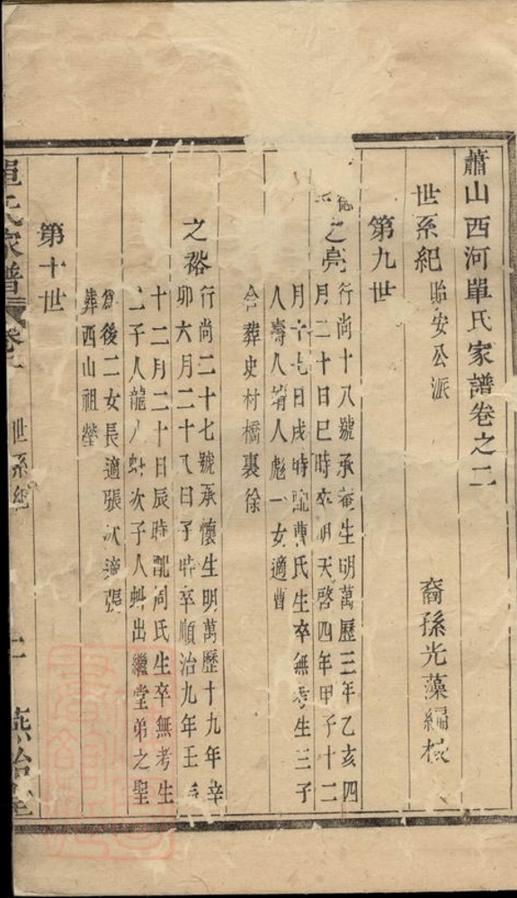 蕭山西河單氏家譜卷之二
世系紀 貽安公派 裔孫光藻編梓
第九世
之亮 行尚十八號承菴生明萬歷三年乙亥四
月二十日巳時卒明天啓四年甲子十二
月十七日戌時配曹氏生卒無考生三子
人壽人堉人彪一女適曹
合葬史村橋裏徐
之裕 行尚二十七號承懷生明萬歷十九年辛
卯六月二十八日子時卒順治九年壬辰
十二月二十日辰時配周氏生卒無考生
二子人龍人蚪次子人蚪出繼堂弟之聖
為後二女長適張次適張
葬西山祖塋
第十世
單氏家譜 卷二 世系紀 一